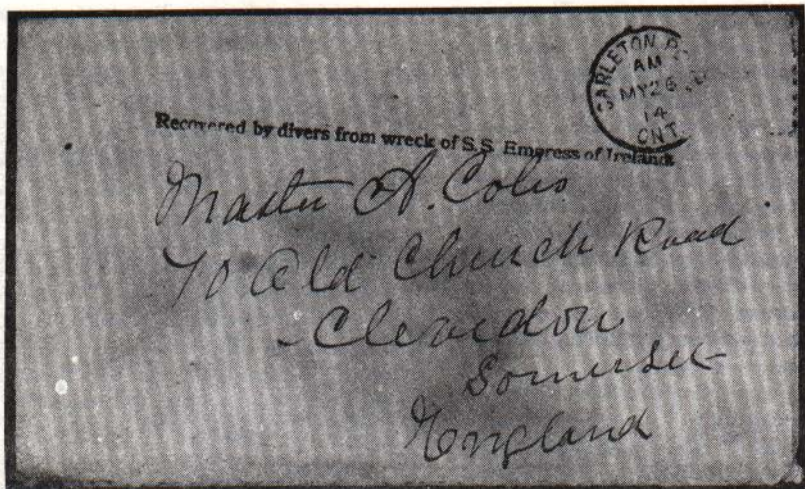 CARLETON
AM
MY 26
14
ONT.
Recovered by divers from wreck of S.S. Empress of Ireland
Master A. Coles
70 Old Church Road
Clevedon
Somerset
England